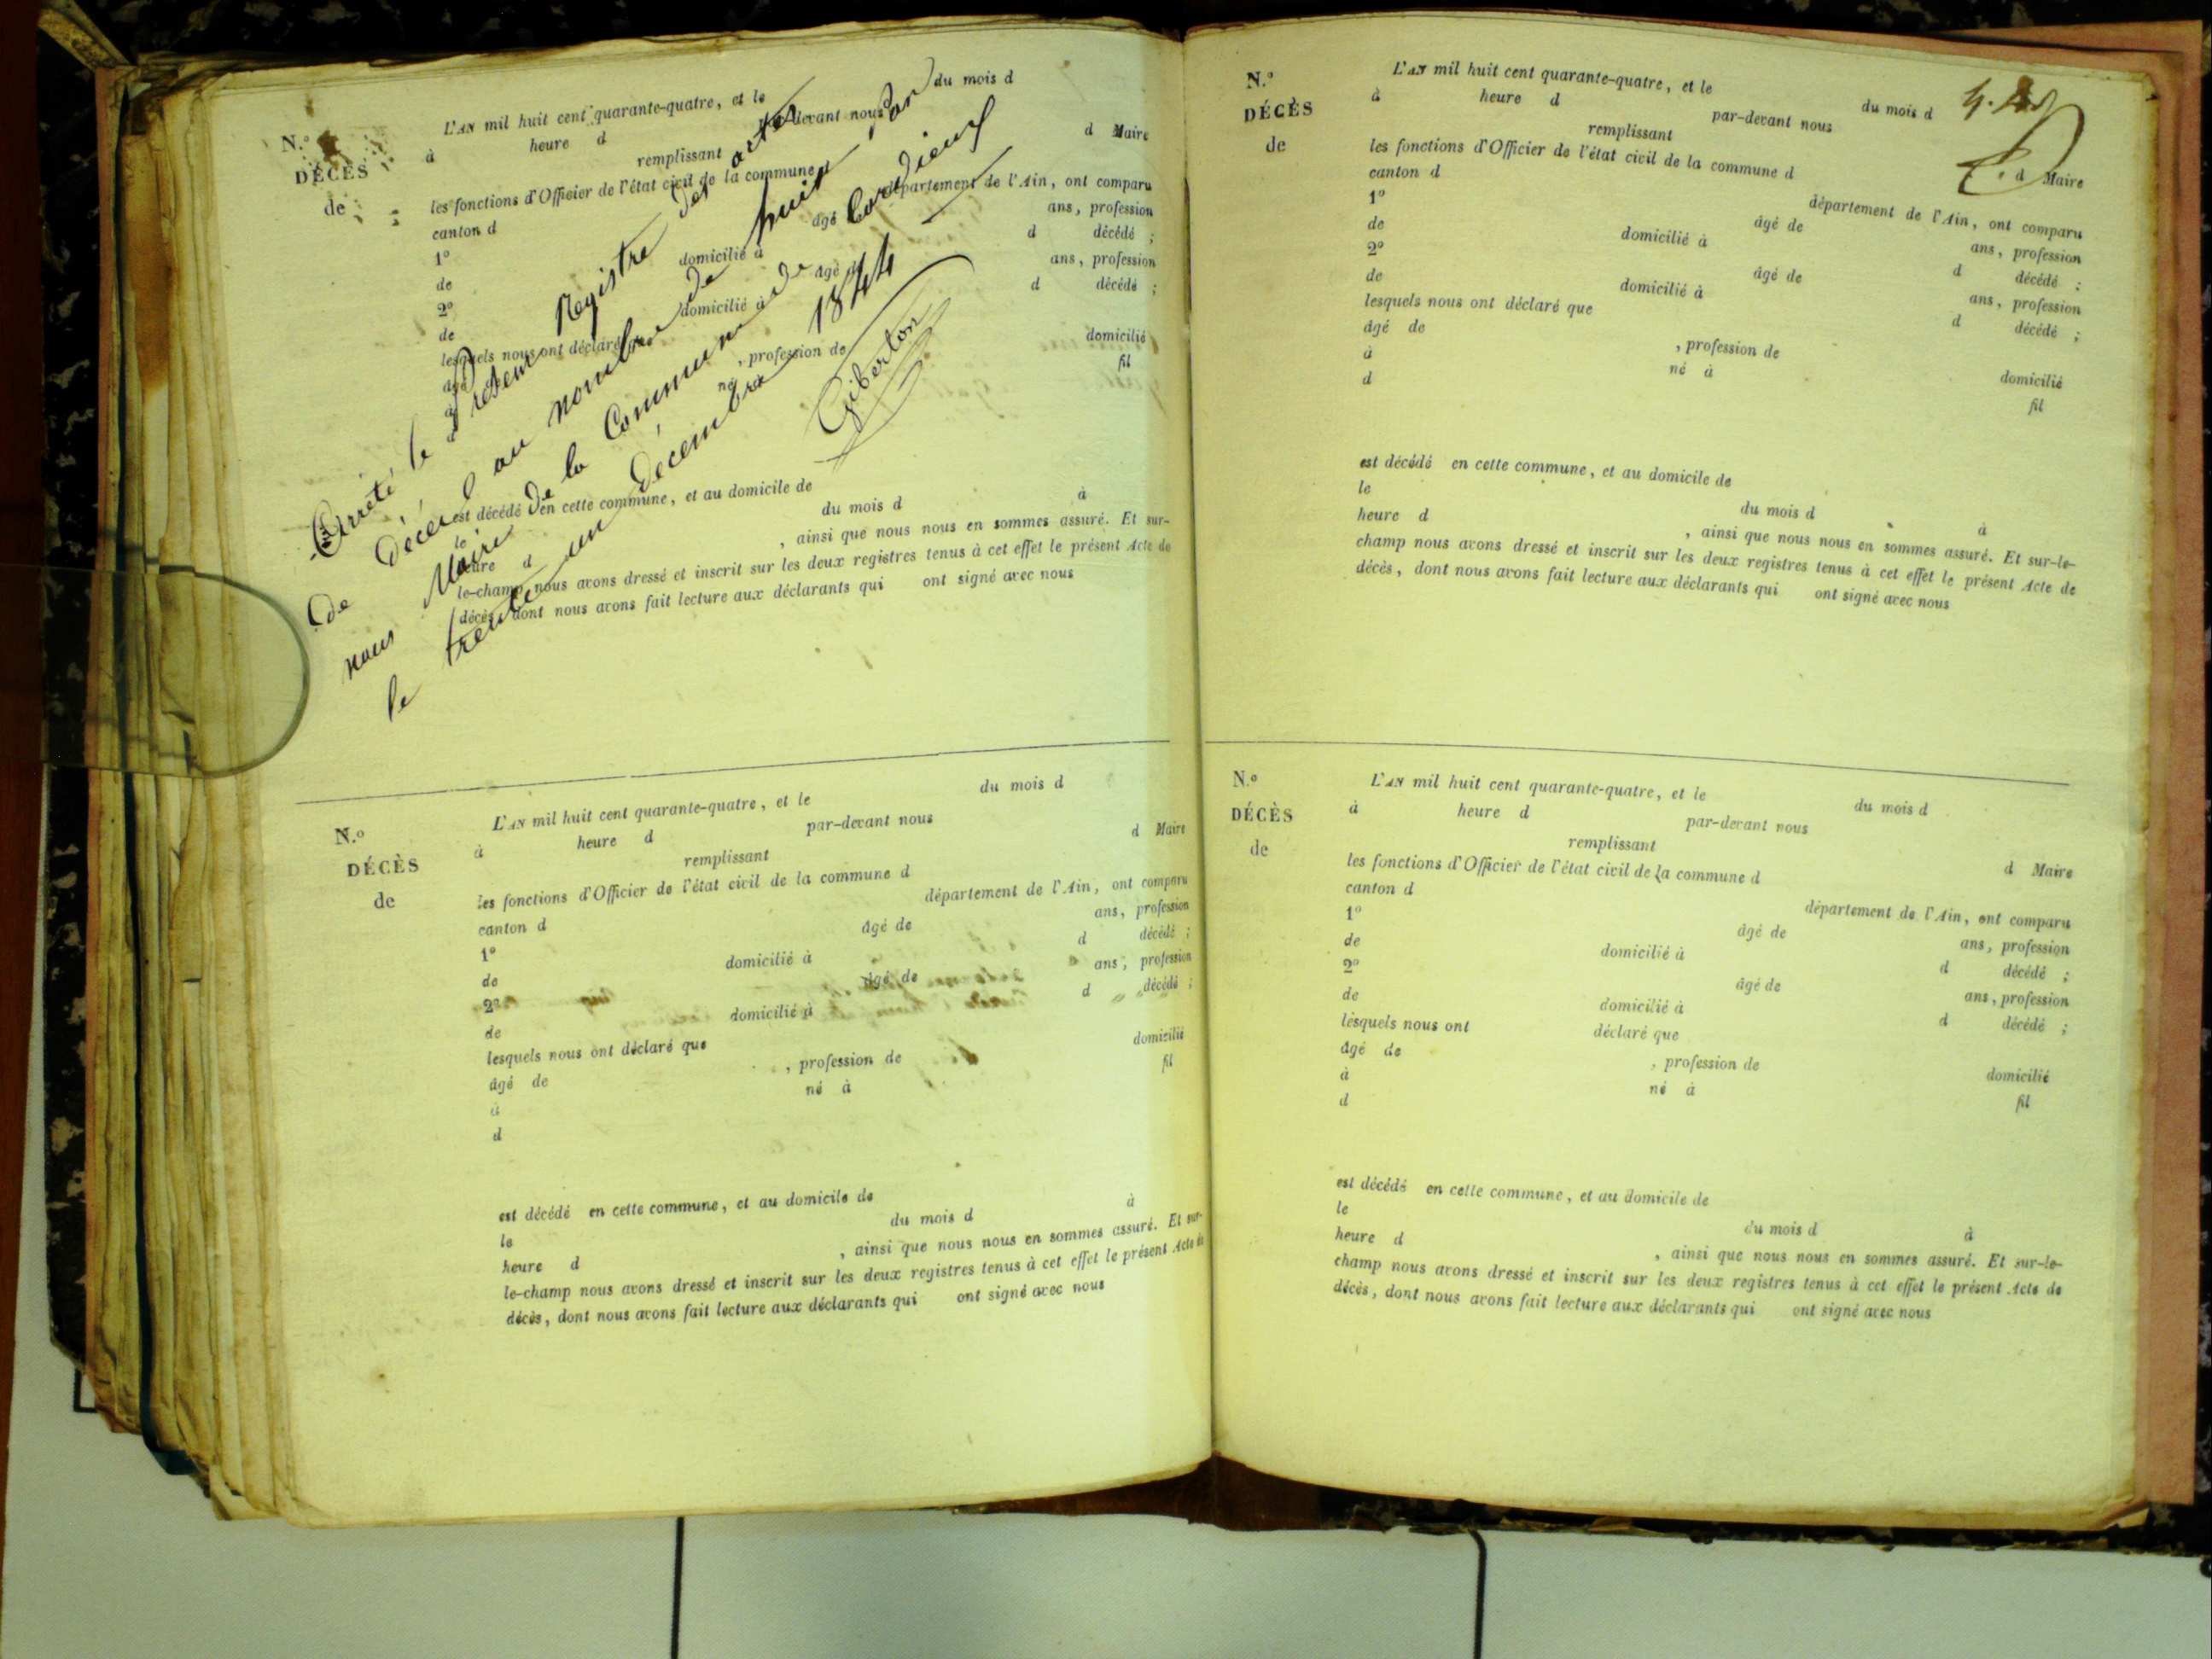 Arrêté le présent Registre des actes
de décès au nombre de huit, par
nous Maire de la Commune de Cordieux
le trente un décembre 1844
Giberton
N.º
DÉCÈS
de
L'AN mil huit cent quarante-quatre, et le du mois d
à heure d par-devant nous
remplissant d Maire
les fonctions d'Officier de l'état civil de la commune
canton d département de l'Ain, ont comparu
1º âgé ans, profession
de domicilié à d décédé ;
2º âgé d ans, profession
de domicilié à d décédé ;
lesquels nous ont déclaré que
âgé , profession de domicilié
à né à fil
d
est décédé en cette commune, et au domicile de
le du mois d à
heure d , ainsi que nous nous en sommes assuré. Et sur-
le-champ nous avons dressé et inscrit sur les deux registres tenus à cet effet le présent Acte de
décès, dont nous avons fait lecture aux déclarants qui ont signé avec nous
N.º
DÉCÈS
de
L'AN mil huit cent quarante-quatre, et le du mois d
à heure d par-devant nous
remplissant d Maire
les fonctions d'Officier de l'état civil de la commune d
canton d département de l'Ain, ont comparu
1º âgé de ans, profession
de domicilié à d décédé ;
2º âgé de ans, profession
de domicilié à d décédé ;
lesquels nous ont déclaré que
âgé de , profession de domicilié
à né à fil
d
est décédé en cette commune, et au domicile de
le du mois d à
heure d , ainsi que nous nous en sommes assuré. Et sur-
le-champ nous avons dressé et inscrit sur les deux registres tenus à cet effet le présent Acte de
décès, dont nous avons fait lecture aux déclarants qui ont signé avec nous
N.º
DÉCÈS
de
L'AN mil huit cent quarante-quatre, et le du mois d
à heure d par-devant nous
remplissant d Maire
les fonctions d'Officier de l'état civil de la commune d
canton d département de l'Ain, ont comparu
1º âgé de ans, profession
de domicilié à d décédé ;
2º âgé de ans, profession
de domicilié à d décédé ;
lesquels nous ont déclaré que
âgé de , profession de domicilié
à né à fil
d
est décédé en cette commune, et au domicile de
le du mois d à
heure d , ainsi que nous nous en sommes assuré. Et sur-le-
champ nous avons dressé et inscrit sur les deux registres tenus à cet effet le présent Acte de
décès, dont nous avons fait lecture aux déclarants qui ont signé avec nous
N.º
DÉCÈS
de
L'AN mil huit cent quarante-quatre, et le du mois d
à heure d par-devant nous
remplissant d Maire
les fonctions d'Officier de l'état civil de la commune d
canton d département de l'Ain, ont comparu
1º âgé de ans, profession
de domicilié à d décédé ;
2º âgé de ans, profession
de domicilié à d décédé ;
lesquels nous ont déclaré que
âgé de , profession de domicilié
à né à fil
d
est décédé en cette commune, et au domicile de
le du mois d à
heure d , ainsi que nous nous en sommes assuré. Et sur-le-
champ nous avons dressé et inscrit sur les deux registres tenus à cet effet le présent Acte de
décès, dont nous avons fait lecture aux déclarants qui ont signé avec nous